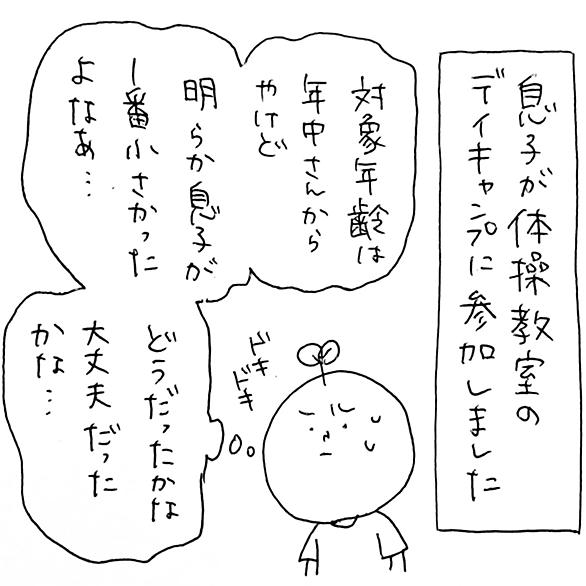 息子が体操教室の
デイキャンプに参加しました
対象年齢は
年中さんから
やけど
明らか息子が
1番小さかった
よなあ…
どうだったかな
大丈夫だった
かな…
ドキ
ドキ